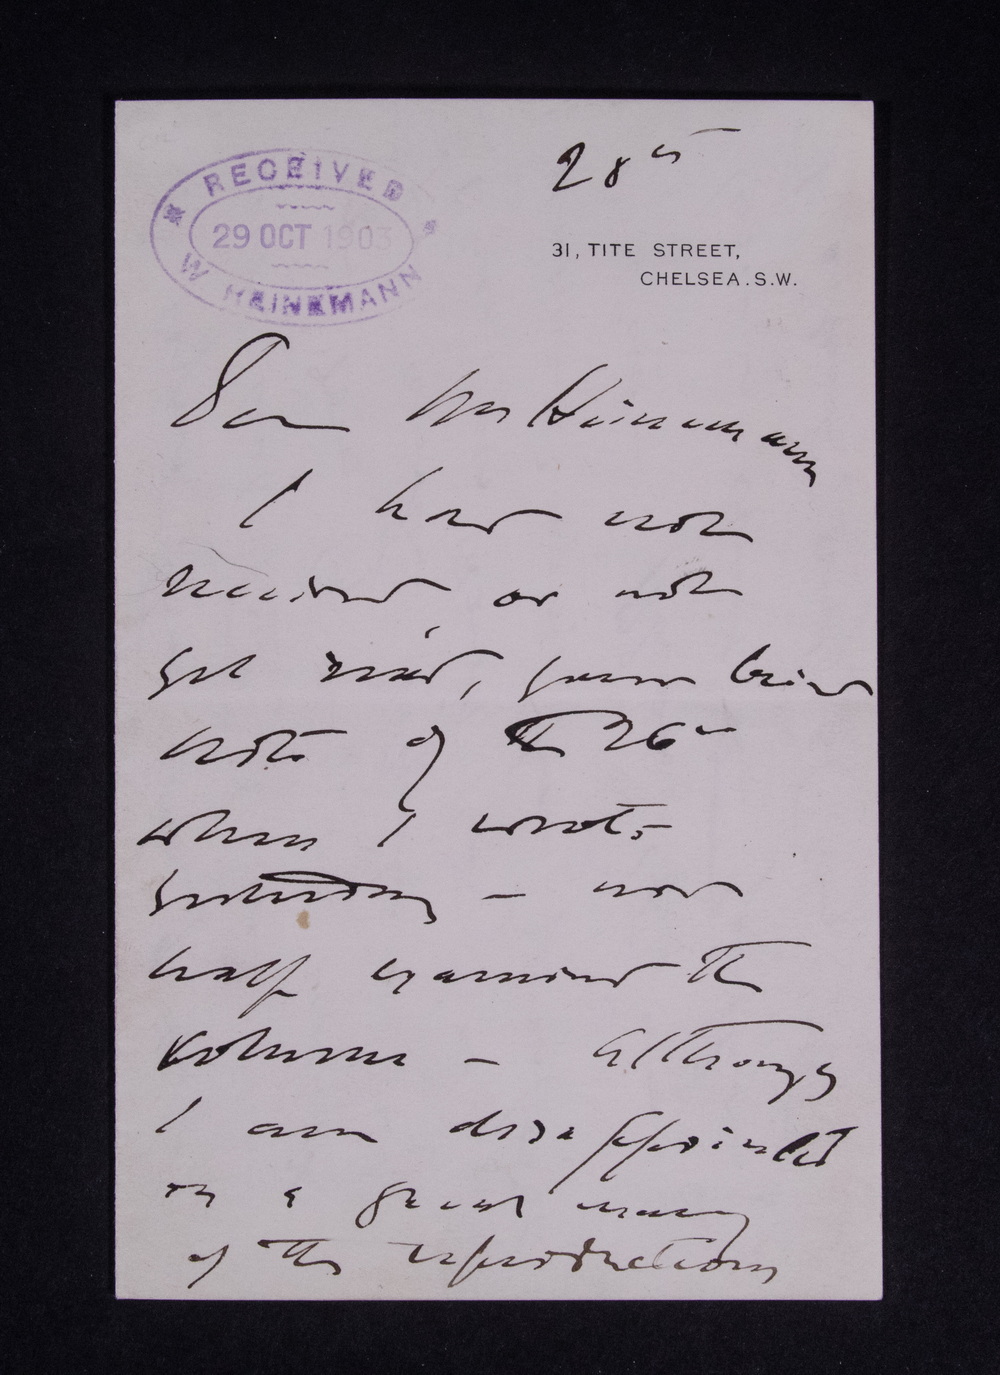 28th
RECEIVED
29 OCT 1903
W HEINEMANN
31, TITE STREET,
CHELSEA. S.W.
Dear Mr Heinemann
I had not
received or not
yet read, your
note of the 26th
when I wrote
yesterday – nor
half examined the
volume – although
I am disappointed
in a great many
of the reproductions